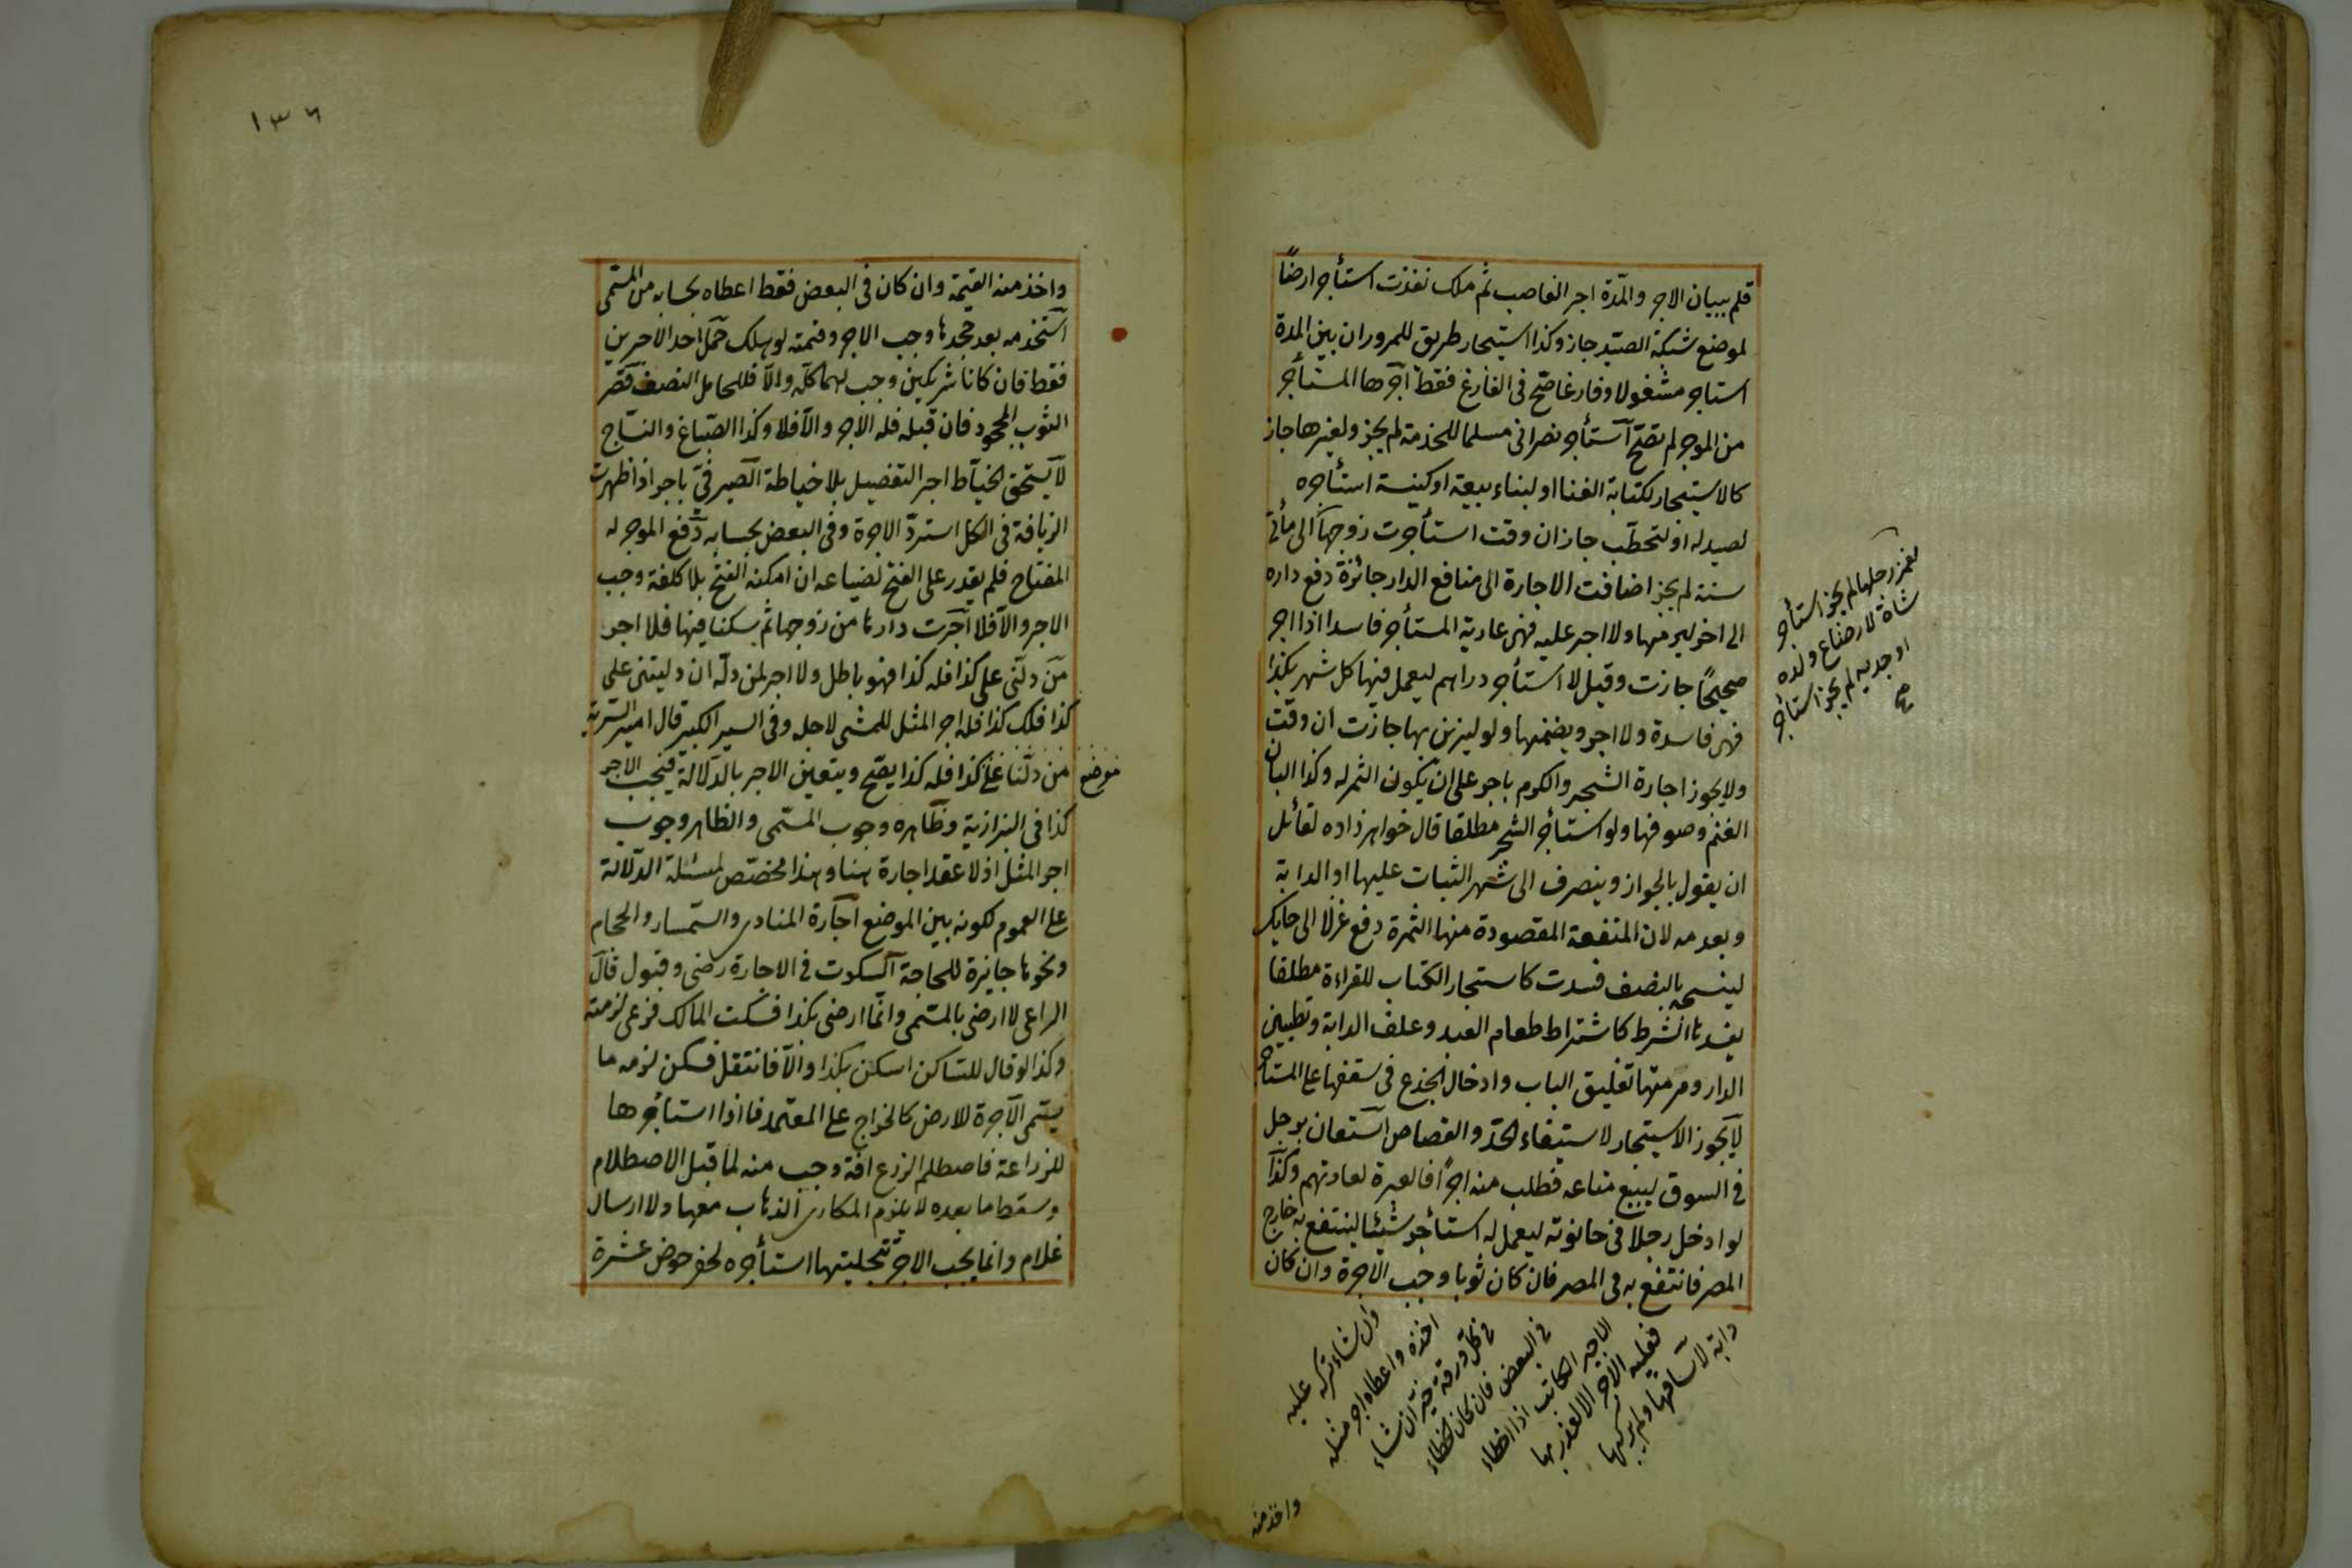 قلم ببيان الاجر والمدة اجر الغاصب ثم ملك نفذت استأجر ارضاً
لموضع شبكة الصيد جاز وكذا استيجار طريق للمرور ان بين المدة
استاجر مشغولا وفارغا صح فى الفارغ فقط آجرها المستأجر
من الموجر لم تصح آستأجر نصرانى مسلما للخدمة لم يجز ولغيرها جاز
كالاستيجار لكتابة الغنا او لبناء بيعة او كنيسة استأجره
لصيد له او لتحطب جاز ان وقت استأجرت زوجها الى مأتى
سنة لم يجز اضافت الاجارة الى منافع الدار جائزة دفع داره
الى اخر ليرمها ولا اجر عليه فهى عارية المستأجر فاسدا اذا اجر
صحيحًا جازت وقيل لا استأجر دراهم ليعمل فيها كل شهر بكذا
فهى فاسدة ولا اجر ويضمنها ولو ليزين بها جازت ان وقت
ولا يجوز اجارة الشجر والكرم باجر على ان يكون الثمر له وكذا البان
الغنم وصوفها ولو استأجر الشجر مطلقا قال خواهر زاده لقائل
ان يقول بالجواز وينصرف الى شهر الثبات عليها او الدابة
وبعدمه لان المنفعة المقصودة منها الثمرة دفع غزلا الى حايك
لينسجه بالنصف فسدت كاستيجار الكتاب للقراءة مطلقا
يفسدها الشرط كاشتراط طعام العبد وعلف الدابة وتطيين
الدار ومرمتها تغليق الباب وادخال الجذع فى سقفها على المستأجر
لا يجوز الاستيجار لاستيفاء الحد والقصاص استعان برجل
فى السوق ليبيع متاعه فطلب منه اجرًا فالعبرة لعادتهم وكذا
لو ادخل رجلا فى حانوته ليعمل له استأجر شيئا لينتفع به خارج
المصر فانتفع به فى المصر فان كان ثوبا وجب الاجرة وان كان
دابة لا ساقها ولم يركبها
فعليه الاجر الا لعذر بها
الاجير الكاتب اذا اخطاء
فى البعض فان كان الخطاء
فى كل ورقة خير ان شاء
اخذه واعطاه اجر مثله
وان شاء تركه عليه
واخذ منه
لغمز رجلها لم يجز استأجر
شاة لارضاع ولده
او جديه لم يجز استأجر
صح
١٣٦
واخذ منه القيمة وان كان فى البعض فقط اعطاه بحسابه من المسمى
آستخدمه بعد جحدها وجب الاجر وقيمته لو هلك حمل احد الاجرين
فقط فان كانا شريكين وجب لهما كله والا فللحامل النصف قصر
الثوب المجحود فان قبله فله الاجر والا فلا وكذا الصباغ والنساج
لا يستحق الخياط اجر التفصيل بلا خياطة الصيرفى باجر اذا ظهرت
الزيافة فى الكل استرد الاجرة وفى البعض بحسابه دفع الموجر له
المفتاح فلم يقدر على الفتح لضياعه ان امكنه الفتح بلا كلفة وجب
الاجر والا فلا آجرت دارها من زوجها ثم سكنا فيها فلا اجر
من دلنى على كذا فله كذا فهو باطل ولا اجر لمن دله ان دليتنى على
كذا فلك كذا فله اجر المثل للمشى لاجله وفى السير الكبير قال امير السرية
من دلنا على كذا فله كذا يصح ويتعين الاجر بالدلالة فيجب الاجر
موضع
كذا فى البزازية وظاهره وجوب المسمى والظاهر وجوب
اجر المثل اذ لا عقد اجارة هنا وهذا مخصص لمسئلة الدلالة
على العموم لكونه بين الموضع اجارة المنادى والسمسار والحمام
ونحوها جايزة للحاجة السكوت فى الاجارة رضى وقبول قال
الراعى لا ارضى بالمسمى وانما ارضى بكذا فسكت المالك فرعى لزمته
وكذا لو قال للساكن اسكن بكذا والا فانتقل فسكن لزمه ما
يسمى الآجرة للارض كالخراج على المعتمد فاذا استأجرها
للزراعة فاصطلم الزرع افة وجب منه لما قبل الاصطلام
وسقط ما بعده لا يلزم المكارى الذهاب معها ولا ارسال
غلام وانما يجب الاجر تتجليتها استأجره لحفر حوض عشرة